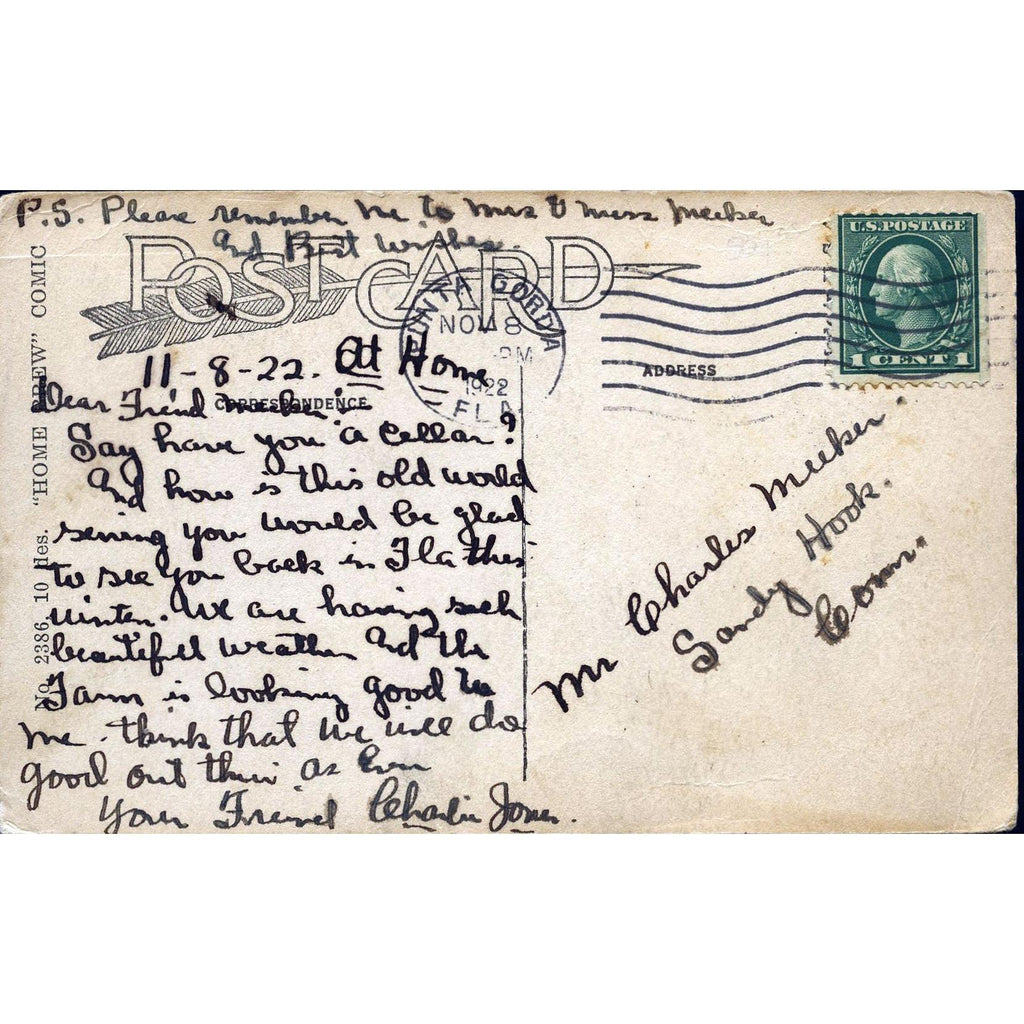 P.S. Please remember me to Mrs & Miss Meeker
And Best Wishes.
POST CARD
PUNTA GORDA
NOV 8
PM
1922
FLA
U.S. POSTAGE
1 CENT 1
ADDRESS
CORRESPONDENCE
No. 2386, 10 des. "HOME BREW" COMIC
11-8-22. At Home
Dear Freind Meeker
Say have you a Cellar?
And how is this old world
serving you would be glad
to see you back in Fla this
winter. We are having such
beautiful weather And the
Farm is looking good to
me. think that we will do
good out thier as Ever
Your Freind Charlie Jones.
Mr Charles Meeker.
Sandy Hook.
Conn.